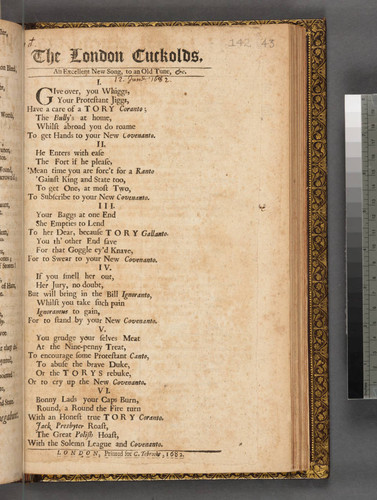 142 43
The London Cuckolds,
An Excellent New Song, to an Old Tune, &c.
1682.
I.
GIve over, you Whiggs,
Your Protestant Jiggs,
Have a care of a TORY Coranto;
The Bully's at home,
Whilst abroad you do roame
To get Hands to your New Covenanto.
II.
He Enters with ease
The Fort if he please,
'Mean time you are forc't for a Ranto
'Gainst King and State too,
To get One, at most Two,
To Subscribe to your New Covenanto.
III.
Your Baggs at one End
She Empties to Lend
To her Dear, because TORY Gallanto.
You th' other End save
For that Goggle ey'd Knave,
For to Swear to your New Covenanto.
IV.
If you smell her out,
Her Jury, no doubt,
But will bring in the Bill Ignoranto,
Whilst you take such pain
Ignoramus to gain,
For to stand by your New Covenanto.
V.
You grudge your selves Meat
At the Nine-penny Treat,
To encourage some Protestant Canto,
To abuse the brave Duke,
Or the TORYS rebuke,
Or to cry up the New Covenanto.
VI.
Bonny Lads your Caps Burn,
Round, a Round the Fire turn
With an Honest true TORY Coranto.
Jack Presbyter Roast,
The Great Polish Hoast,
With the Solemn League and Covenanto.
LONDON, Printed for C. Tebroc, 1682.